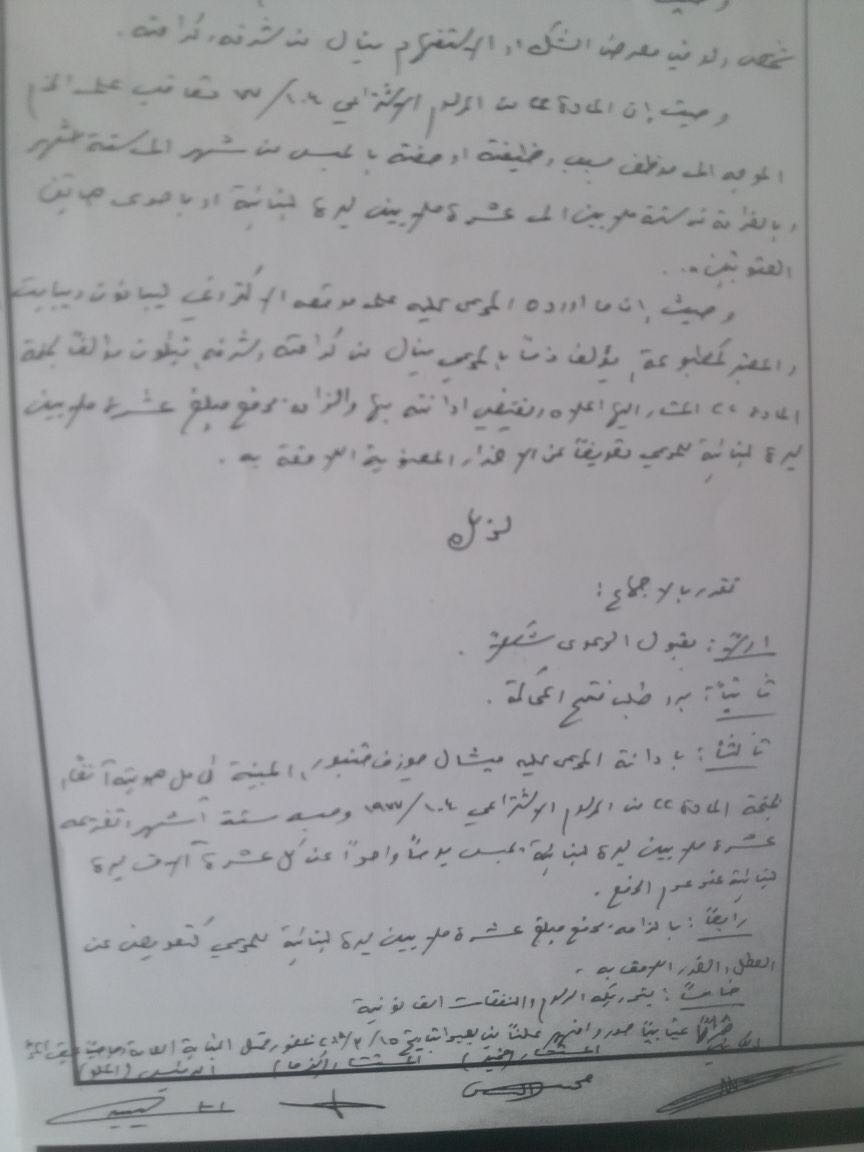 وحيث
شخص ولو في معرض الشك او الاستفهام ينال من شرفه وكرامته .
وحيث ان المادة ٢٢ من المرسوم الاشتراعي ١٠٤/٧٧ تعاقب على الذم
الموجه الى موظف بسبب وظيفته او صفته بالحبس من شهر الى ستة اشهر
وبالغرامة من ستة ملايين الى عشرة ملايين ليرة لبنانية او باحدى هاتين
العقوبتين .
وحيث ان ما اورده المدعى عليه على موقعه الالكتروني ليبانون ديبايت
والمعتبر كمطبوعة يؤلف ذماً بالمدعي ينال من كرامته وشرفه فيكون مؤلفاً لجنحة
المادة ٢٢ المشار اليها اعلاه ويقتضي ادانته بها والزامه بدفع مبلغ عشرة ملايين
ليرة لبنانية للمدعي تعويضاً عن الاضرار المعنوية اللاحقة به .
لذلك
تقرر بالاجماع :
اولاً : بقبول الدعوى شكلاً .
ثانياً : برد طلب فتح المحاكمة .
ثالثاً : بادانة المدعى عليه ميشال جوزف قنبور، المبينة كامل هويته آنفاً،
بجنحة المادة ٢٢ من المرسوم الاشتراعي ١٠٤/١٩٧٧ وحبسه ستة اشهر وتغريمه
عشرة ملايين ليرة لبنانية يحبس يوماً واحداً عن كل عشرة آلاف ليرة
لبنانية عند عدم الدفع .
رابعاً : بالزامه بدفع مبلغ عشرة ملايين ليرة لبنانية للمدعي كتعويض عن
العطل والضرر اللاحق به .
خامساً : بتدريكه الرسوم والنفقات القانونية
غيابياً صدر وافهم علناً في بعبدا بتاريخ ١٥/٣/ بحضور ممثل النيابة العامة
الكاتب المستشار المستشار الرئيس (الحلو)